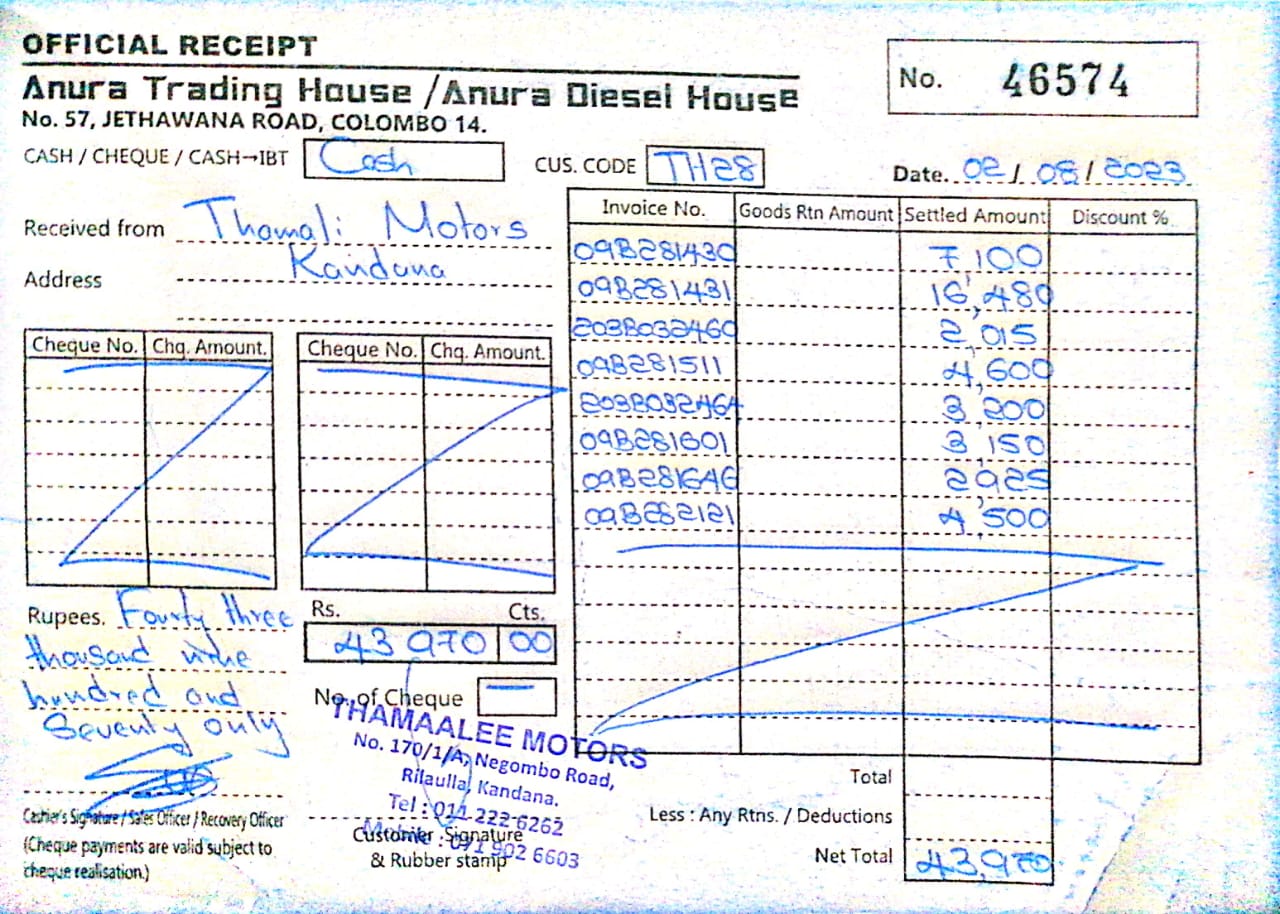 OFFICIAL RECEIPT
Anura Trading House / Anura Diesel House
No. 57, JETHAWANA ROAD, COLOMBO 14.
No. 46574
CASH / CHEQUE / CASH→IBT Cash
CUS. CODE TH28
Date. 02 / 08 / 2023
Received from Thamali Motors
Address Kandana
Invoice No. Goods Rtn Amount Settled Amount Discount %
09B281430 7,100
09B281431 16,480
203B032460 2,015
09B281511 4,600
203B032464 3,200
09B281601 3,150
09B281646 2,925
09B282121 4,500
Cheque No. Chq. Amount. Cheque No. Chq. Amount.
Rupees. Fourty three
thousand nine
hundred and
Seventy only
Rs. Cts.
43 970 00
No. of Cheque —
THAMAALEE MOTORS
No. 170/1/A, Negombo Road,
Rilaulla, Kandana.
Tel : 011 222 6262
Mobile : 071 902 6603
Customer Signature
& Rubber stamp
Cashier's Signature / Sales Officer / Recovery Officer
(Cheque payments are valid subject to
cheque realisation.)
Total
Less : Any Rtns. / Deductions
Net Total 43,970